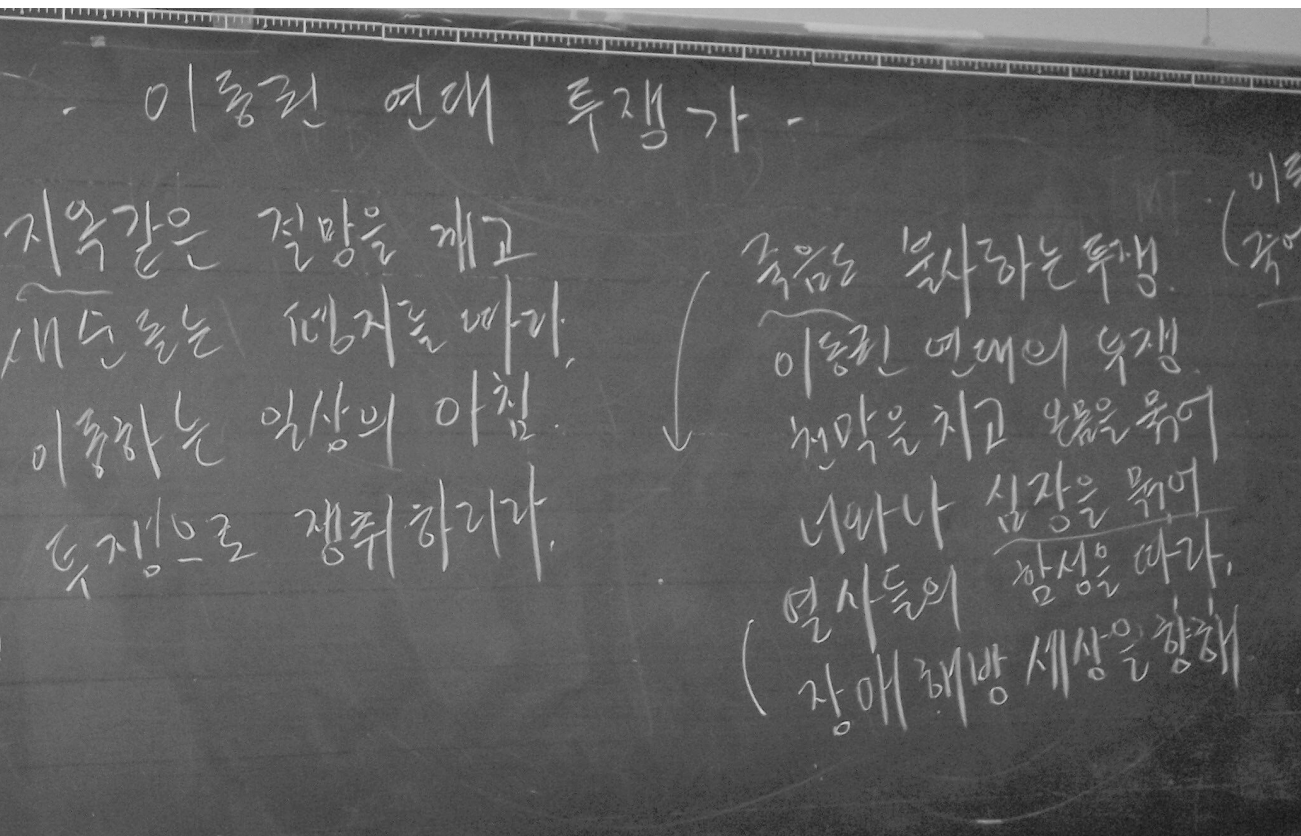 · 이동권 연대 투쟁가 ·
지옥같은 절망을 깨고
새순 돋는 의지를 따라,
이동하는 일상의 아침.
투쟁으로 쟁취하리라.
죽음도 불사하는 투쟁.
이동권 연대의 투쟁.
천막을 치고 온몸을 묶어
너와 나 심장을 묶어
열사들의 함성을 따라,
(장애해방 세상을 향해
(이동
죽어